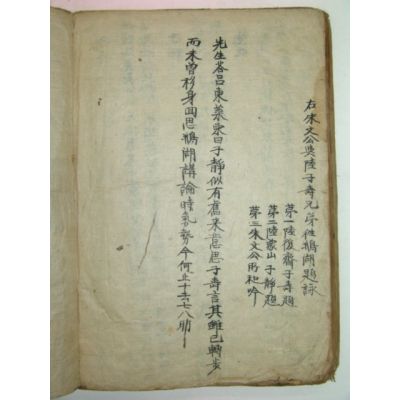 右朱文公與陸子壽兄弟往鵝湖題詠
第一陸復齋子壽題
第二陸象山子靜題
第三朱文公所和吟
先生答呂東萊柬曰子靜似有舊來意思子壽言其雖已轉步
而未曾移身回思鵝湖講論時氣勢今何止十去七八耶